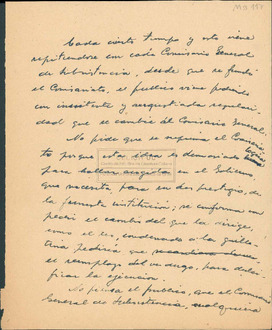 Cada cierto tiempo y esto viene
repitiéndose con cada Comisario General
de Subsistencia, desde que se fundó
el Comisariato, el público viene pidiendo
con insistente y angustiada regulari-
dad que se cambie el Comisario General.
No pide que se suprima el Comisaria-
to porque esta idea es demasiado
para hallar acogida en el Gobierno
que necesita para su prestigio, de
la funesta institución; se conforma con
pedir el cambio del que la dirige,
como el reo, condenado a la guillo-
tina pediría que
el reemplazo del verdugo, para dulci-
ficar la ejecución.
No piensa el público, que el Comisario
General de Subsistencia, cualquiera